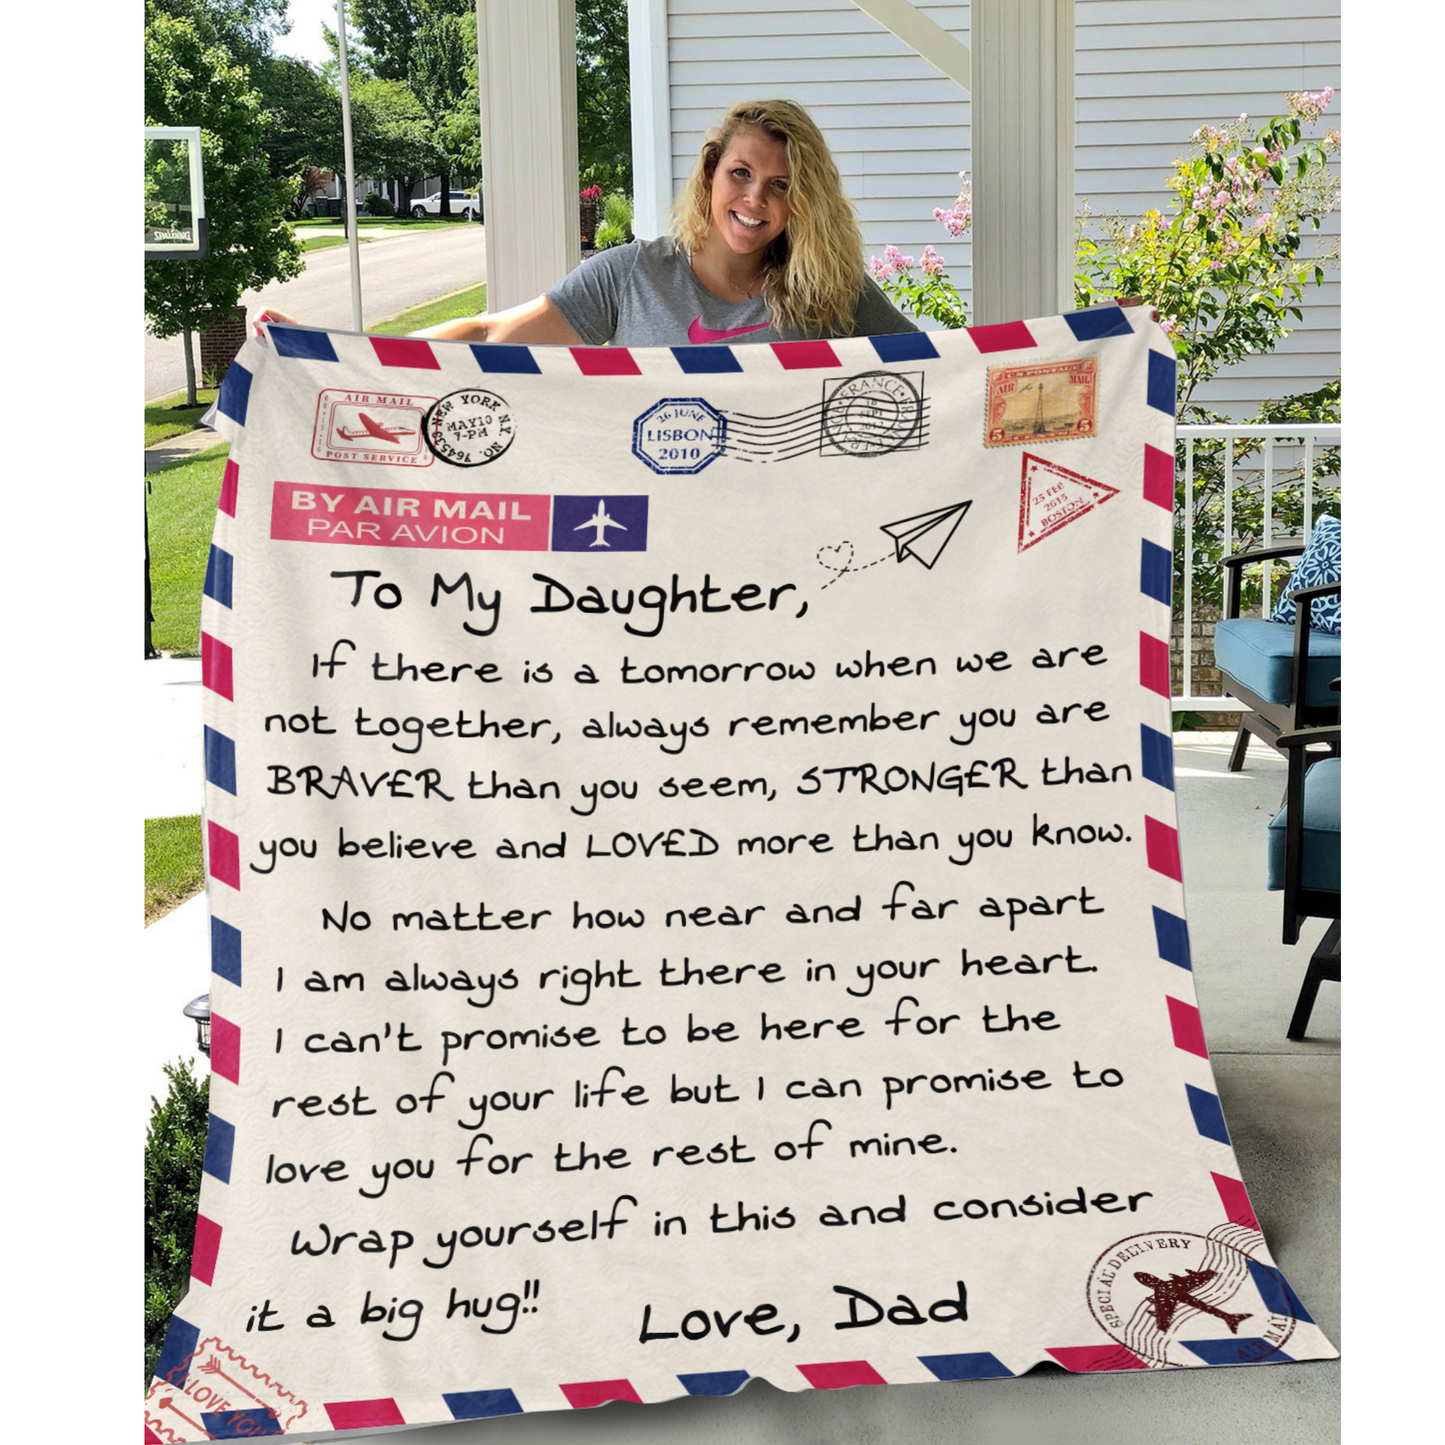 SPALDING
AIR MAIL
POST SERVICE
NEW YORK N.Y.
MAY 10
7-PM
26 JUNE
LISBON
2010
FRANCE
U.S. POSTAGE
AIR MAIL
5 5
23 FEB
2015
BOSTON
BY AIR MAIL
PAR AVION
To My Daughter,
If there is a tomorrow when we are
not together, always remember you are
BRAVER than you seem, STRONGER than
you believe and LOVED more than you know.
No matter how near and far apart
I am always right there in your heart.
I can't promise to be here for the
rest of your life but I can promise to
love you for the rest of mine.
Wrap yourself in this and consider
it a big hug!!
Love, Dad
SPECIAL DELIVERY
AIR MAIL
I LOVE YOU